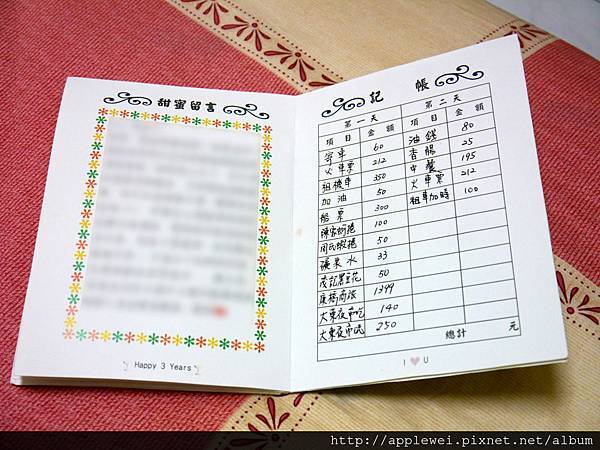 甜蜜留言
Happy 3 Years
記 帳
第一天 第二天
項目 金額 項目 金額
寄車 60 油錢 80
火車票 212 香腸 25
租機車 350 中餐 195
加油 50 火車票 212
船票 300 租車加時 100
陳家蚵捲 100
周氏蝦捲 50
礦泉水 33
茂記黑豆花 50
康橋商旅 1399
大東夜市吃 140
大東夜市玩 250
總計 元
I ♥ U
http://applewei.pixnet.net/album